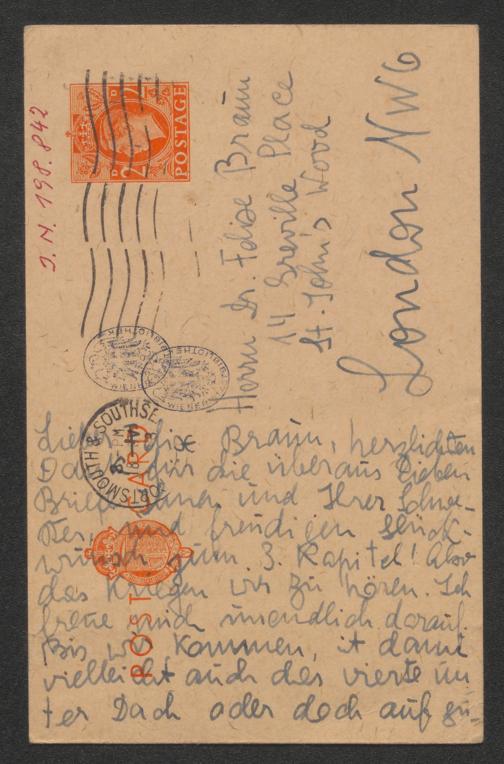 J. N. 198.842
POSTAGE
Herrn Dr. Felix Braun
14 Greville Place
St. John's Wood
London NW6
PORTSMOUTH & SOUTHSEA
POST CARD
Lieber Felix Braun, herzlichsten
Dank für die überaus lieben
Briefe und Ihrer Schwe-
ster, und freudigen Glück-
wunsch zum 3. Kapitel! Also
das kriegen wir zu hören. Ich
freue mich unendlich darauf.
Bis wir kommen, ist dann
vielleicht auch das vierte un-
ter Dach oder doch auf gu-